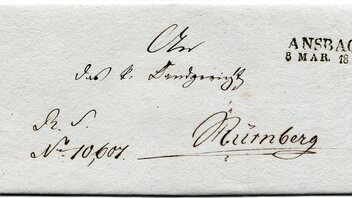 An
ANSBAC
8 MAR. 18
das k. Landgericht
R. S.
Nº 10,607.
Nürnberg